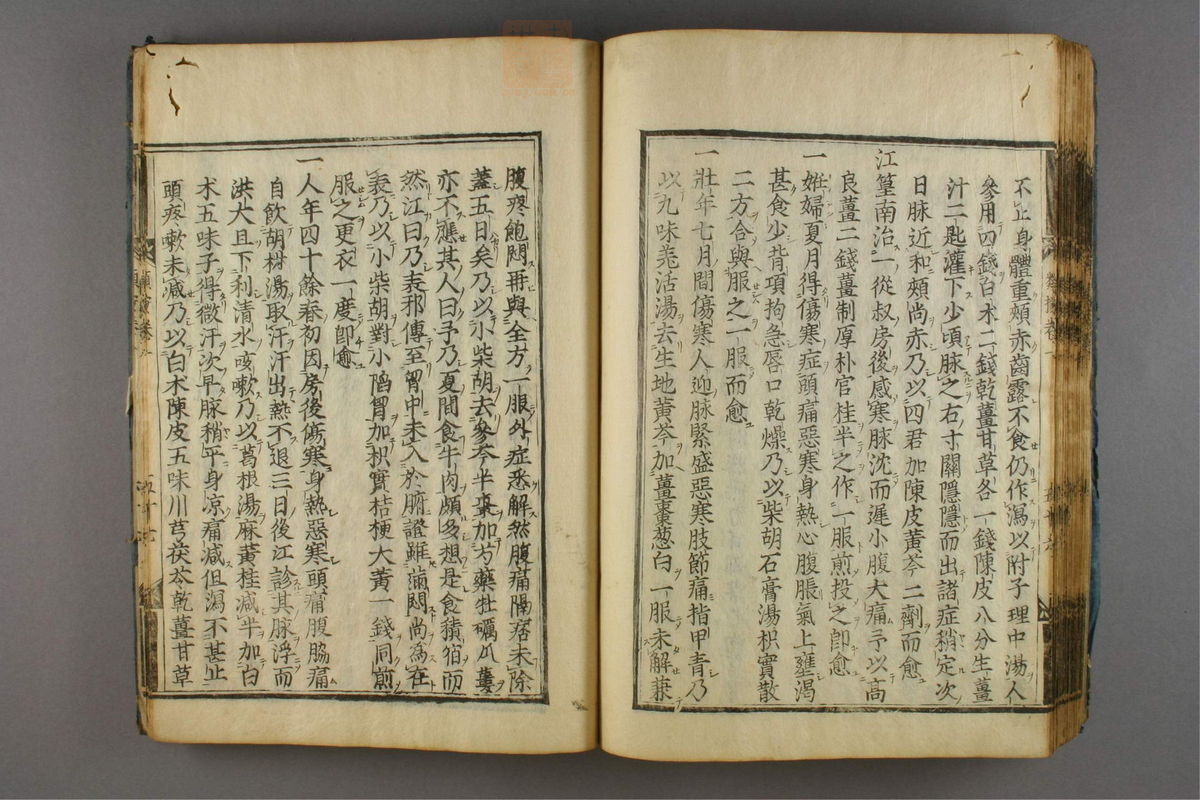 不止身體重頰赤齒露不食仍作瀉以附子理中湯人
參用四錢白朮二錢乾薑甘草各一錢陳皮八分生薑
汁二匙灌下少頃脉之右寸關隱隱而出諸症稍定次
日脉近和頰尚赤乃以四君加陳皮黃芩二劑而愈
江篁南治一從叔房後感寒脉沈而遲小腹大痛予以高
良薑二錢薑制厚朴官桂半之作一服煎投之卽愈
一姙婦夏月得傷寒症頭痛惡寒身熱心腹脹氣上壅渴
甚食少背項拘急唇口乾燥乃以柴胡石膏湯枳實散
二方合與服之一服而愈
一壯年七月間傷寒人迎脉緊盛惡寒肢節痛指甲青乃
以九味羌活湯去生地黃芩加薑棗葱白一服未解兼
腹疼飽悶再與全方一服外症悉解然腹痛隔痞未除
蓋五日矣乃以小柴胡去參芩半棗加芍藥牡礪瓜蔞
亦不應其人曰予乃夏間食牛肉頗多想是食積宿而
然江曰乃表邪傳至胷中未入於腑證雖滿悶尚爲在
表乃以小柴胡對小陷胷加枳實桔梗大黃一錢同煎
服之更衣一度卽愈
一人年四十餘春初因房後傷寒身熱惡寒頭痛腹脇痛
自飲胡椒湯取汗汗出熱不退三日後江診其脉浮而
洪大且下利清水咳嗽乃以葛根湯麻黃桂減半加白
朮五味子得微汗次早脉稍平身凉痛減但瀉不甚止
頭疼嗽未減乃以白朮陳皮五味川芎茯苓乾薑甘草